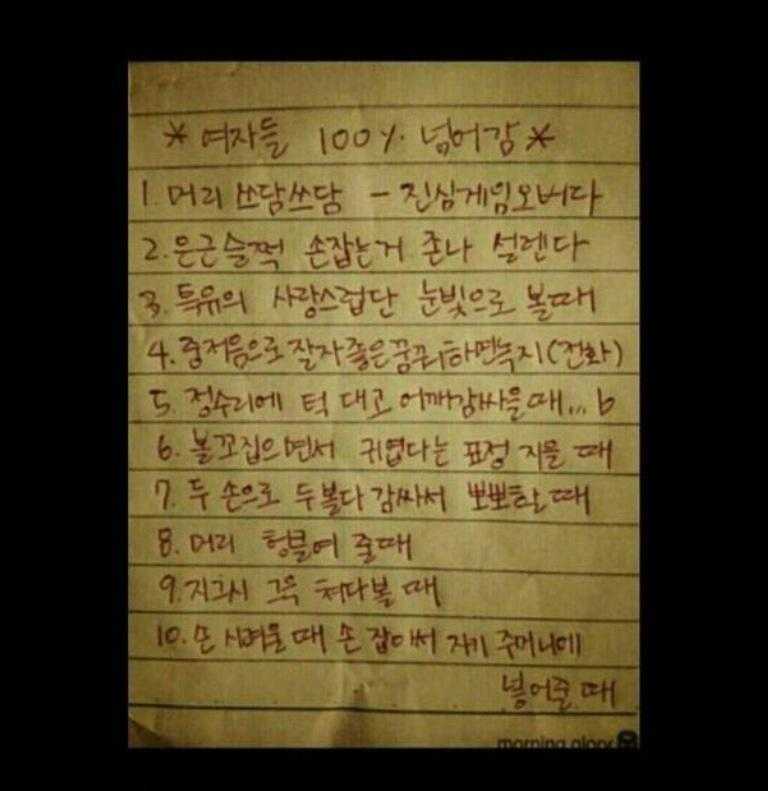 * 여자들 100% 넘어감 *
1. 머리 쓰담쓰담 - 진심게임오버다
2. 은근슬쩍 손잡는거 존나 설렌다
3. 특유의 사랑스럽단 눈빛으로 볼때
4. 중저음으로 잘자좋은꿈꿔하면녹지(전화)
5. 정수리에 턱 대고 어깨감싸올때... b
6. 볼꼬집으면서 귀엽다는 표정 지을 때
7. 두 손으로 두볼다감싸서 뽀뽀할때
8. 머리 헝블어 줄때
9. 지그시 그윽 쳐다볼 때
10. 손 시려울 때 손 잡아서 자기 주머니에
넣어줄 때
morning glory